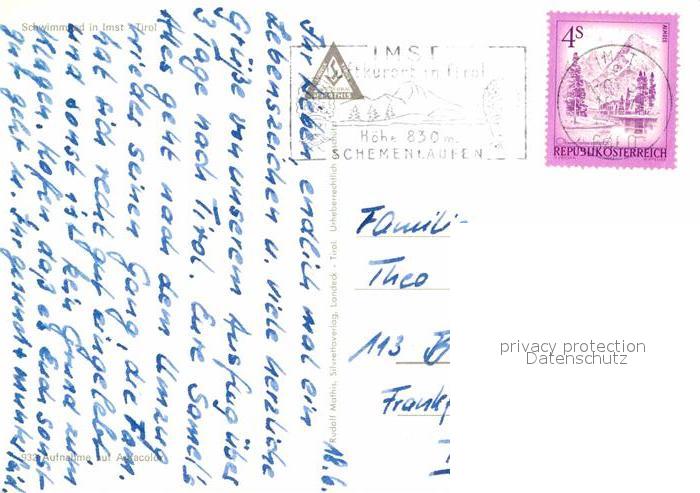 Schwimmbad in Imst · Tirol
Ihr Lieben, endlich mal ein
Lebenszeichen u. viele herzliche
Grüße von unserem Ausflug über
3 Tage nach Tirol. Eure Samels
Alles geht nach dem Umzug
wieder seinen Gang, die Fam.
hat sich recht gut eingelebt
und sonst ist kein Grund zum
klagen. Hoffen daß es Euch sonst
gut geht u. Ihr gesund + munter
933 Aufnahme auf Agfacolor
Rudolf Mathis, Silvrettaverlag, Landeck - Tirol. Urheberrechtlich
IMST
Luftkurort in Tirol
Höhe 830 m
SCHEMENLAUFEN
MATHIS
4S
ALMSEE
REPUBLIK ÖSTERREICH
IMST
Famili-
Theo
113
Frank
privacy protection
Datenschutz